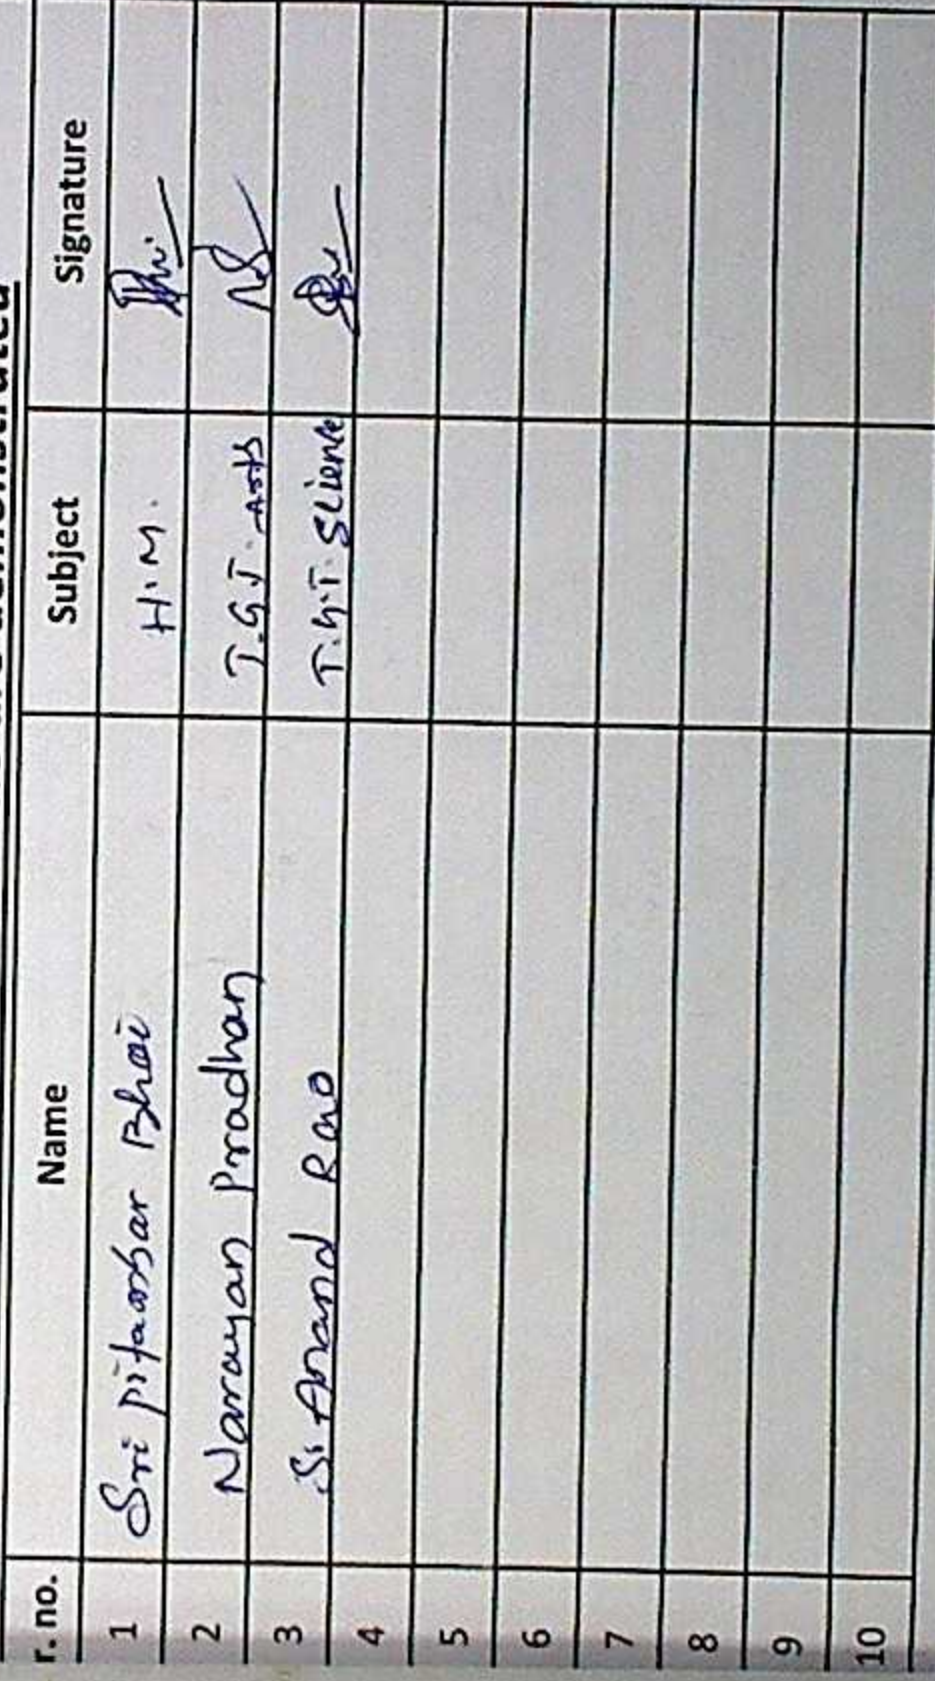 r. no. Name Subject Signature
1 Sri Pitambar Bhoi H.M.
2 Narayan Pradhan T.G.T. Arts
3 S. Anand Rao T.G.T. Science
4
5
6
7
8
9
10